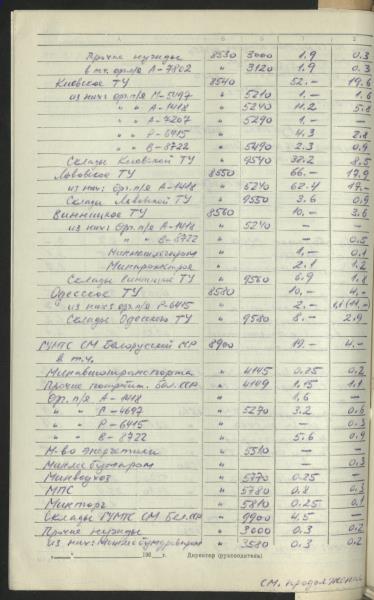 А Б В 1 2
Прочие нужды 8530 3000 1.9 0.3
в т.ч. орг.п/я А-7802 " 3120 1.9 0.3
Киевское ТУ 8540 52.- 19.6
из них: орг.п/я М-5497 " 5210 1.- 1.6
" " А-1418 " 5240 11.2 5.8
" " А-7207 " 5290 1.- —
" " Р-6415 " 4.3 2.8
" " В-8722 " 5490 2.3 0.9
Склады Киевской ТУ " 9540 32.2 8.5
Львовское ТУ 8550 66.- 17.9
из них: орг.п/я А-1418 " 5240 62.4 17.-
Склады Львовской ТУ " 9550 3.6 0.9
Винницкое ТУ 8560 10.- 3.6
из них: орг.п/я А-1418 " 5240 — —
" " В-8722 " — 0.5
" 1.- 0.1
" 2.1 1.2
Склады Винницк ТУ " 9560 6.9 1.8
Одесское ТУ 8580 10.- 4.-
из них: орг.п/я Р-6415 " 2.-
Склады Одесской ТУ " 9580 8.- 2.9
ГУМТС СМ Белорусской ССР 8900 19.- 4.-
в т.ч.
Минавиотранспорта " 4145 0.25 0.2
Прочие потребит. Бел.ССР " 4149 1,15 1.1
Орг. п/я А-1418 " 1,6 —
" " Р-4697 " 5270 3.2 0.6
" " Р-6415 " — 0.3
" " В-8722 " 5.6 0.9
М-во энергетики " 5510 — —
Минлесбумпром " — 0.3
Минводхоз " 5770 0.25 —
МПС " 5780 0.8 0.3
Минторг " 5810 0.25 0.1
Склады ГУМТС СМ Бел.ССР " 9900 4.5 —
Прочие нужды " 3000 0.3 0.2
из них: Минлесбумдревпром " 3580 0.3 0.2
"___"__________198__г. Директор (руководитель)
см. продолжение